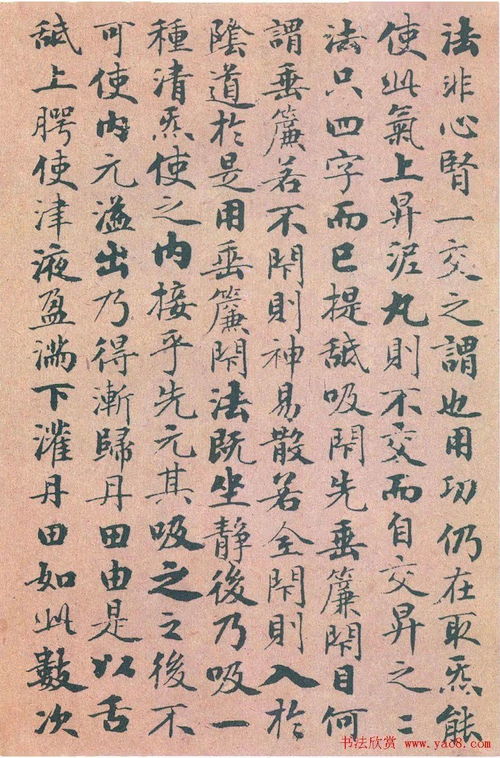 法非心腎一交之謂也用功仍在取炁能
使此氣上昇泥丸則不交而自交昇之〻
法只四字而已提舐吸閇先垂簾閇目何
謂垂簾若不閇則神易散若全閇則入於
陰道於是用垂簾閇法既坐靜後乃吸一
種清炁使之内接乎先元其吸之之後不
可使内元溢出乃得漸歸丹田由是以舌
舐上腭使津液盈満下灌丹田如此數次
书法欣赏 www.yac8.com